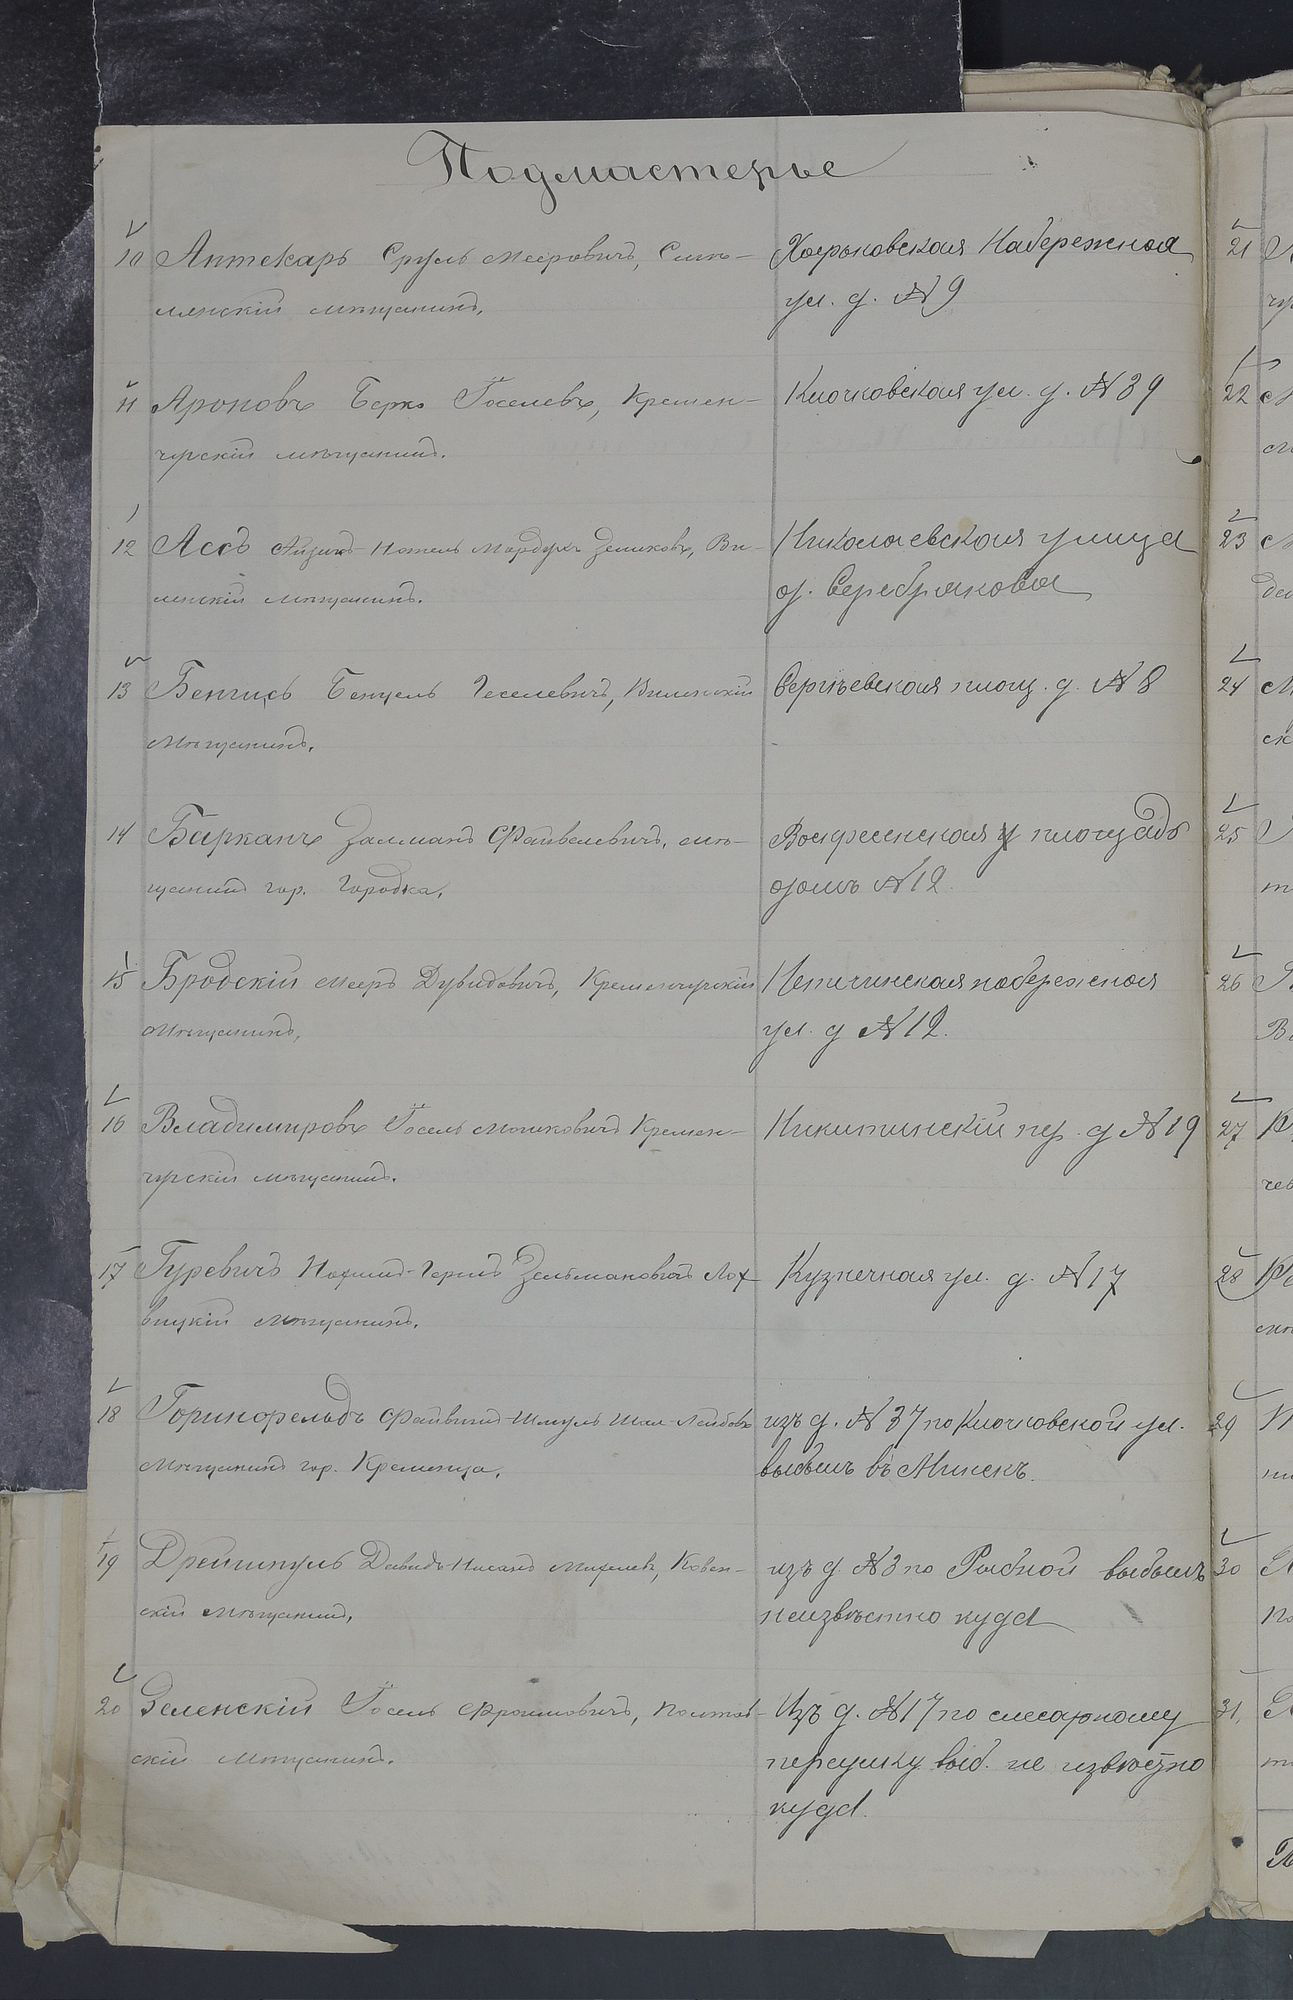 Подмастерье
10 Аптекарь Сруль Мееровичъ, Смѣ-
лянскій мѣщанинъ.
Харьковская Набережная
ул. д. № 9
11 Ароновъ Берко Іоселевъ, Кремен-
чугскій мѣщанинъ.
Клочковская ул. д. № 39
12 Ассъ Айзикъ Мордухъ Зеликовъ, Ви-
ленскій мѣщанинъ.
Николаевская улица
д. Серебрякова
13 Бенгисъ Бенцель Геселевичъ, Виленскій
мѣщанинъ.
Сергѣевская площ. д. № 8
14 Барканъ Залманъ Файвелевичъ, мѣ-
щанинъ гор. Городка.
Воскресенская площадь
домъ № 12.
15 Бродскій Мееръ Дувидовичъ, Кременчугскій
мѣщанинъ,
Нетечинская набережная
ул. д № 12.
16 Владимировъ Іосель Мошковичъ Кремен-
чугскій мѣщанинъ.
Никитинскій пер. д № 19
17 Гуревичъ Нохимъ- Зельмановичъ Лох-
вицкій мѣщанинъ.
Кузнечная ул. д. № 17
18 Горинфельдъ Файвишъ-Шмуль Лейбовъ
мѣщанинъ гор. Кременца.
изъ д. № 37 по Клочковской ул.
выбылъ въ Минскъ.
19 Давидъ Михелевъ, Ковен-
скій мѣщанинъ,
изъ д. № 3 по Рыбной выбылъ
неизвѣстно куда
20 Зеленскій Іосель Фроимовичъ, Полтав-
скій мѣщанинъ.
Изъ д. № 17 по слесарному
переулку выб. не извѣстно
куда.
21
22
23
24
25
26
27
28
29
30
31.